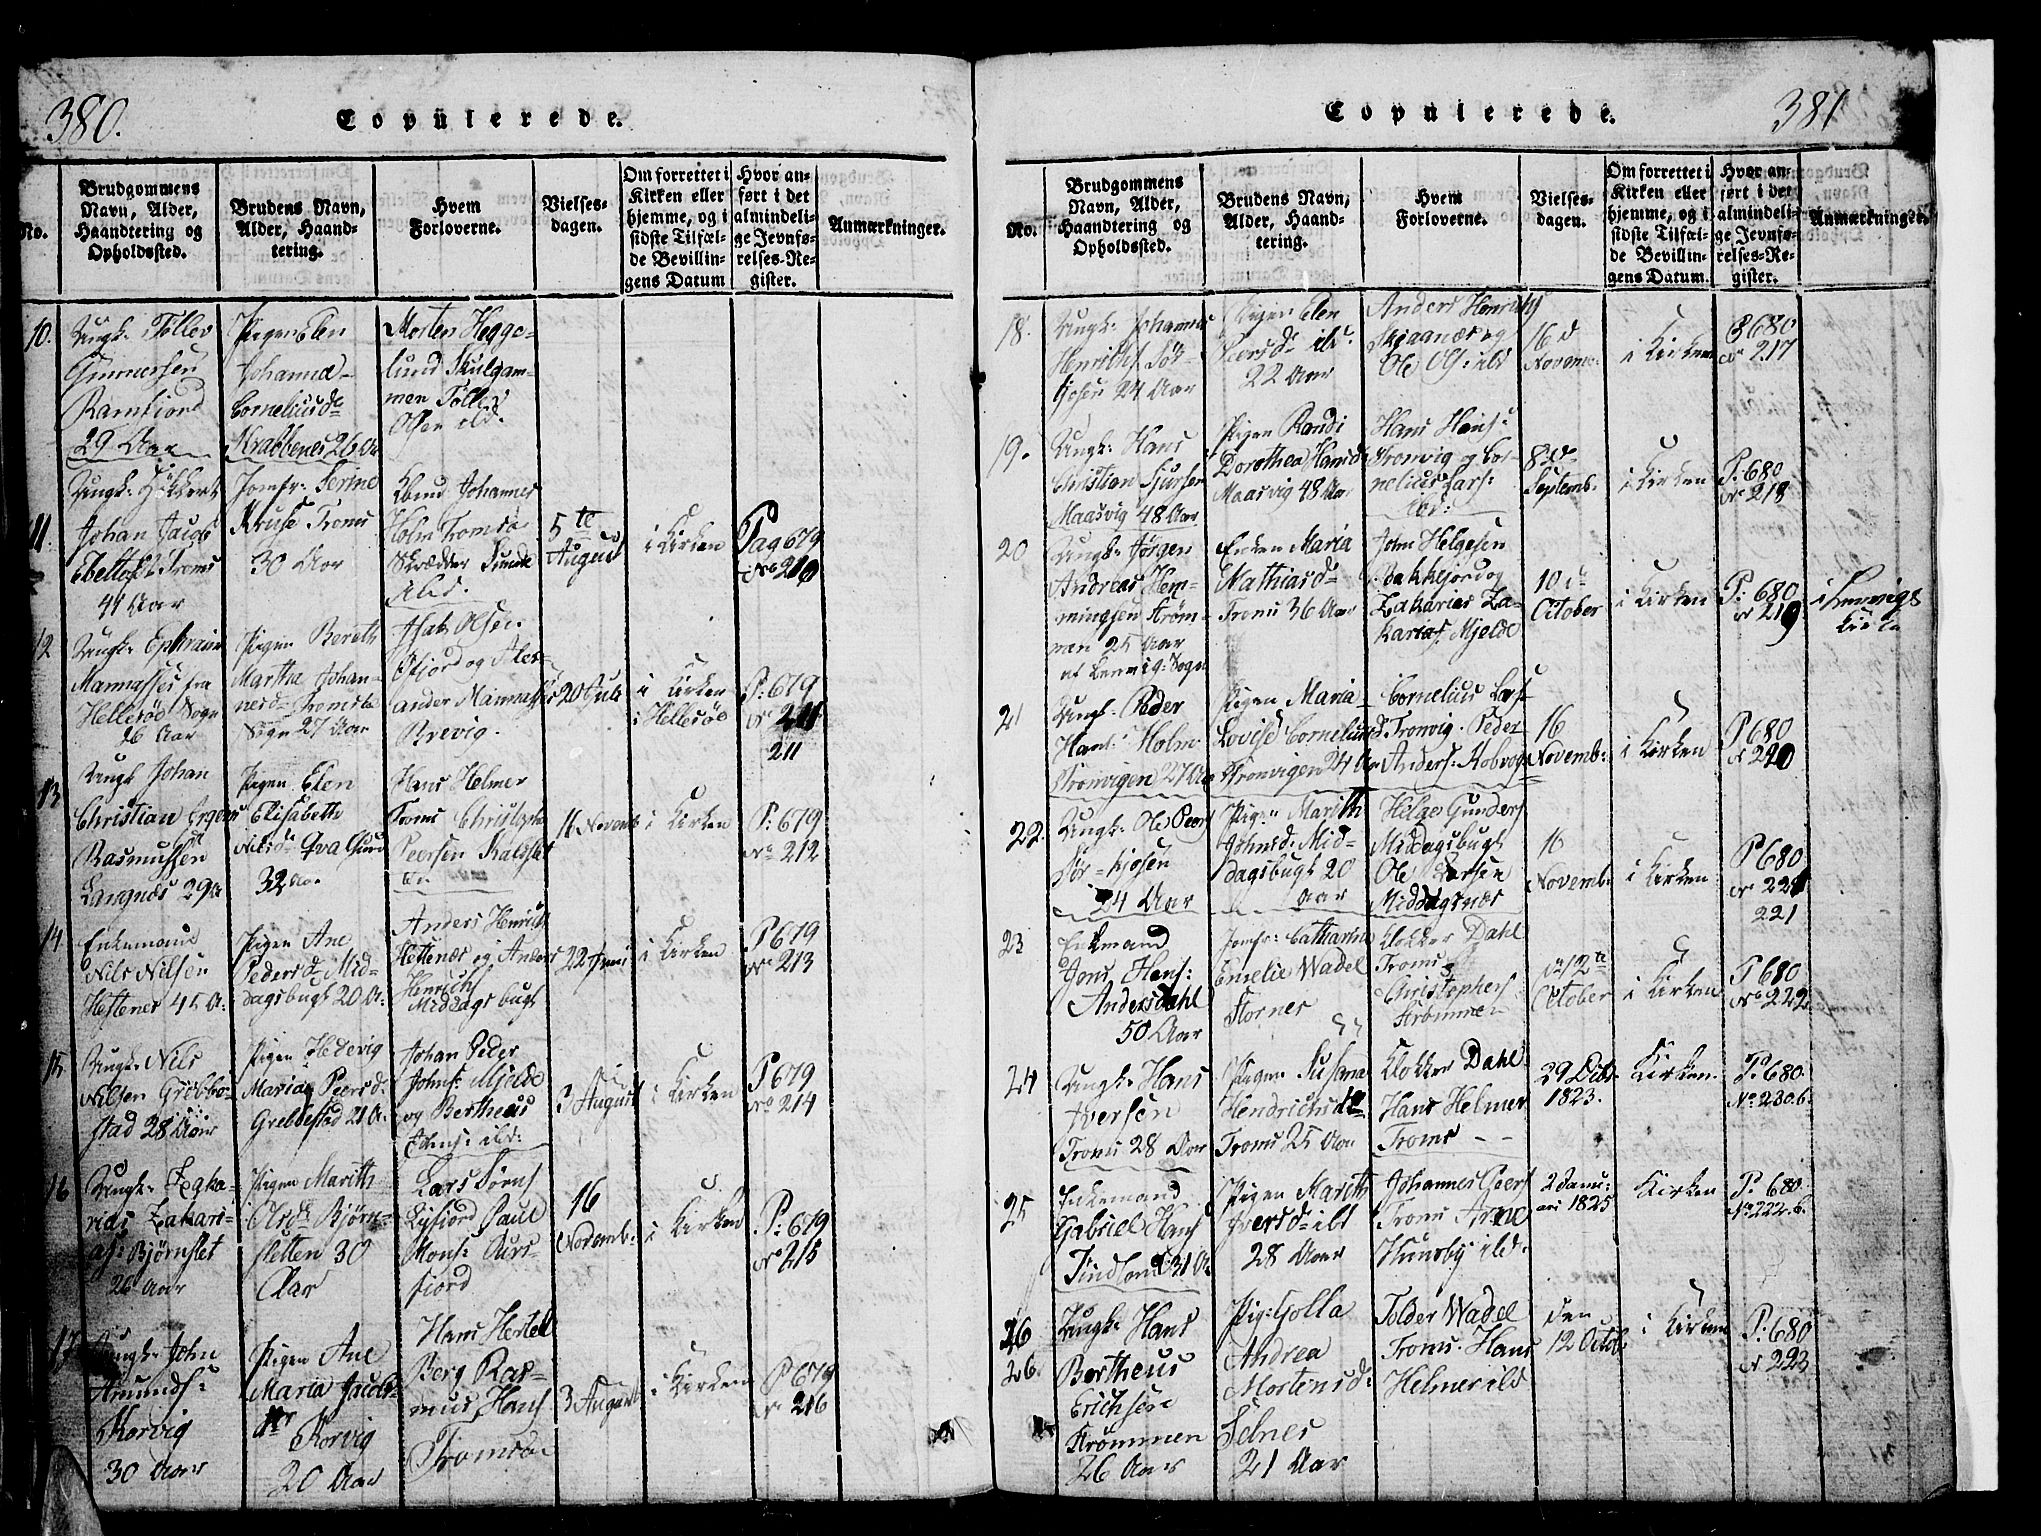 380.
Copulerede.
No.
Brudgommens
Navn, Alder,
Haandtering og
Opholdssted.
Brudens Navn,
Alder, Haand-
tering.
Hvem
Forloverne.
Vielses-
dagen.
Om forrettet i
Kirken eller
hjemme, og i
sidste Tilfæl-
de Bevillin-
gens Datum
Hvor an-
ført i det
almindeli-
ge Jevnfø-
relses-Re-
gister.
Anmærkninger.
10.
Ungk: Tollev
Gunnersen
Ramfiord
29 Aar
Pigen Elen
Johanna
Cornelius dr
Krabbenes 26 Ar
Morten Hegge-
lund Skulgam-
men Tollev
Olsen ibd.
11
Ungk: Hökkert
Johan Jacob
Ebeltoft Troms
41 Aar
Jomfr: Serine
Kruse Troms
30 Aar
Johannes
Holm Tromsö
Skrædder Sunde
ibid.
5te
August
i Kirken
Pag 679
No 210
12
Ungk: Ephraim
Mannasses fra
Hellesöe Sogn
26 Aar
Pigen Bereth
Martha Johan-
nesd: Tromsöe
Sogn 27 Aar
Isak Olsen
Öfjord og Alex-
ander Mannasses
Brevig.
20 Juli
i Kirken
i Hellesöe
P: 679
No 211
211
13
Ungk Johan
Christian
Rasmussen
Langnæs 29 Ar
Pigen Elen
Elisabeth
Nilsd: Qvalsund
32 Aar
Hans Helmer
Troms Christopher
Peersen Kaldslet
16 Novemb
i Kirken
P: 679
No 212
14
Enkemand
Nils Nilsen
Hestenes 45 A:
Pigen Ane
Pedersd Mid-
dagsbugt 20 A:
Anders Henrichs
Hettenæs og Anders
Henrichs
Middagsbugt
22 Juni
i Kirken
P 679
No 213
15
Ungk: Nils
Nilsen Grebbe-
stad 28 Aar
Pigen Hedevig
Maria Peersd:
Grebbestad 21 A:
Johan Peder
Johns: Mjelde
og Bertheus
Johns: ibd:
3 August
i Kirken
P 679
No 214
16
Ungk: Zacha-
rias Zakari-
as: Björnslet
26 Aar
Pigen Marith
Olsdr Björn-
sletten 30
Aar
Lars Sörens
Lyfiord Paul
Mons: Kurs-
fiord
16
Novemb:
i Kirken
P: 679
No 215
17
Ungk: John
Amunds:
Korvig
30 Aar
Pigen Ane
Maria Jacobs-
dr Korvig
20 Aar
Hans Hertel
Berg Ras-
mus Hans
Tromsöe
3 August
i Kirken
P 679
No 216
Copulerede.
381
No.
Brudgommens
Navn, Alder,
Haandtering og
Opholdssted.
Brudens Navn,
Alder, Haand-
tering.
Hvem
Forloverne.
Vielses-
dagen.
Om forrettet i
Kirken eller
hjemme, og i
sidste Tilfæl-
de Bevillin-
gens Datum.
Hvor an-
ført i det
almindeli-
ge Jevnfø-
relses-Re-
gister.
Anmærkninger.
18.
Ungk: Johannes
Henrichs Sör-
kjosen 24 Aar
Pigen Elen
Peersd: ibd:
22 Aar
Anders Henrichs
Skaanæs og
Ole Ols: ibd
16 d
Novemb:
i Kirken
P 680
No 217
19.
Ungk: Hans
Christian Sjursen
Maasvig 48 Aar
Pigen Randi
Dorothea Hansd:
Maasvig 48 Aar
Hans Hans:
Tronvig og Cor-
nelius Lars:
ibd:
8de
Septemb:
i Kirken
P: 680
No 218
20
Ungk: Jörgen
Andreas Hem-
mingsen Ström-
men 25 Aar
af Lenvig: Sogn
Enken Maria
Mathiasdr
Troms 36 Aar
John Helgesen
Bakkejord og
Zakarias Za-
karias Mjelde
10 d
October
i Kirken
P: 680
No 219
i Lenvigs
Kirke
21
Ungk: Peder
Hans: Holm
Tronvigen 27 Aar
Pigen Maria
Lovise Cornelius d
Tronvigen 24 Aar
Cornelius Lars
Tronvig. Peder
Anders: Kobvog
16
Novemb:
i Kirken
P 680
No 220
22.
Ungk: Ole Peers
Sör-kjosen
24 Aar
Pig: Marith
Johnsd: Mid-
dagsbugt 20
Aar
Helge Gunders
Middagsbugt
Ole Larsen
Middagsnæs
16
Novemb:
i Kirken
P 680
No 221
221
23
Enkemand
Jens Hans:
Andersdahl
50 Aar
Jomfr: Catharina
Emelie Wadel
Stornes
Klokker Dahl
Troms
Christophers
Strömmen
12te
October
i Kirken
P 680
No 222
24
Ungk: Hans
Iversen
Troms 28 Aar
Pigen Susana
Hendrichsdr
Troms 25 Aar
Klokker Dahl
Hans Helmer
Troms
29 Octbr
1823.
Kirken
P: 680
No 230 b.
25
Enkemand
Gabriel Hans
Tindland 31 A:
Pigen Mareth
Iversd: ibd
28 Aar
Johannes Peers
Troms Arne
Hunsby ibd:
2 Janu:
ari 1825
Kirken
P: 680
No 222.b.
26
26.
Ungk: Hans
Bertheus
Erichsen
Strömmen
26 Aar
Pig: Golla
Andrea
Mortensd:
Selnes
21 Aar
Tolder Wadel
Troms. Hans
Helmer ibd
den
12 Octob
i Kirken
P: 680
No 223